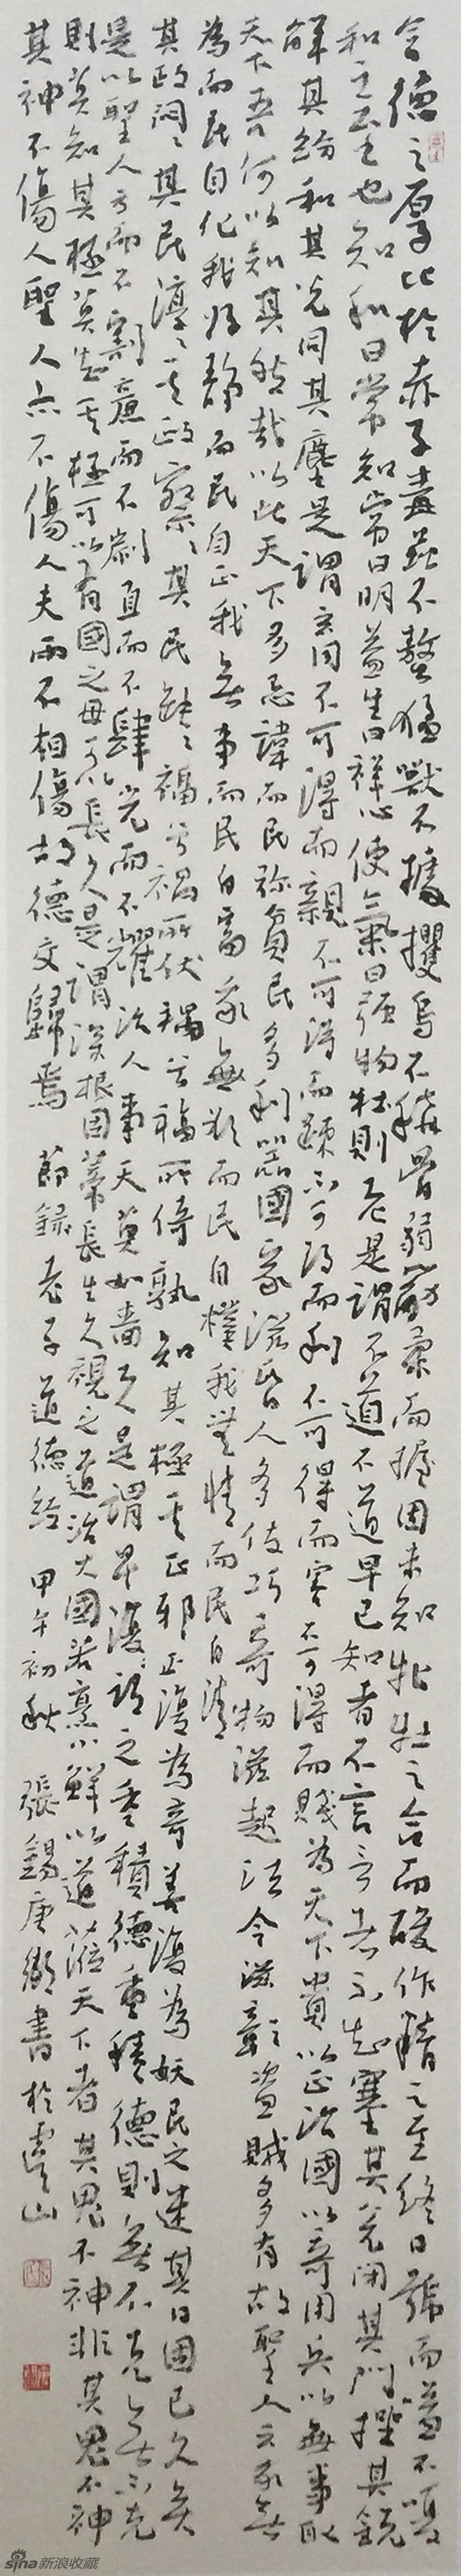 含德之厚比於赤子毒虫不螫猛獸不據攫鳥不搏骨弱筋柔而握固未知牝牡之合而朘作精之至終日號而嗌不嗄
和之至也知和曰常知常曰明益生曰祥心使氣曰強物壯則老是謂不道不道早已知者不言言者不知塞其兌閉其門挫其銳
解其紛和其光同其塵是謂玄同不可得而親不可得而踈不可得而利不可得而害不可得而賤為天下貴以正治國以奇用兵以無事取
天下吾何以知其然哉以此天下多忌諱而民弥貧民多利器國家滋昏人多伎巧奇物滋起法令滋彰盜賊多有故聖人云我無
為而民自化我好靜而民自正我無事而民自富我無欲而民自樸我無情而民自清
其政悶々其民淳々其政察々其民缺々禍兮福所倚孰知其極其正邪正復為奇善復為妖民之迷其日固已久矣
是以聖人方而不割廉而不劌直而不肆光而不耀治人事天莫如嗇夫是謂早復謂之重積德重積德則無不克無不克
則莫知其極莫知其極可以有國有國之母可以長久是謂深根固蒂長生久視之道治大國若烹小鮮以道蒞天下者其鬼不神非其鬼不神
其神不傷人聖人亦不傷人夫兩不相傷故德交歸焉 節錄老子道德經 甲午初秋 張錫庚鄉書於虞山
sina新浪收藏